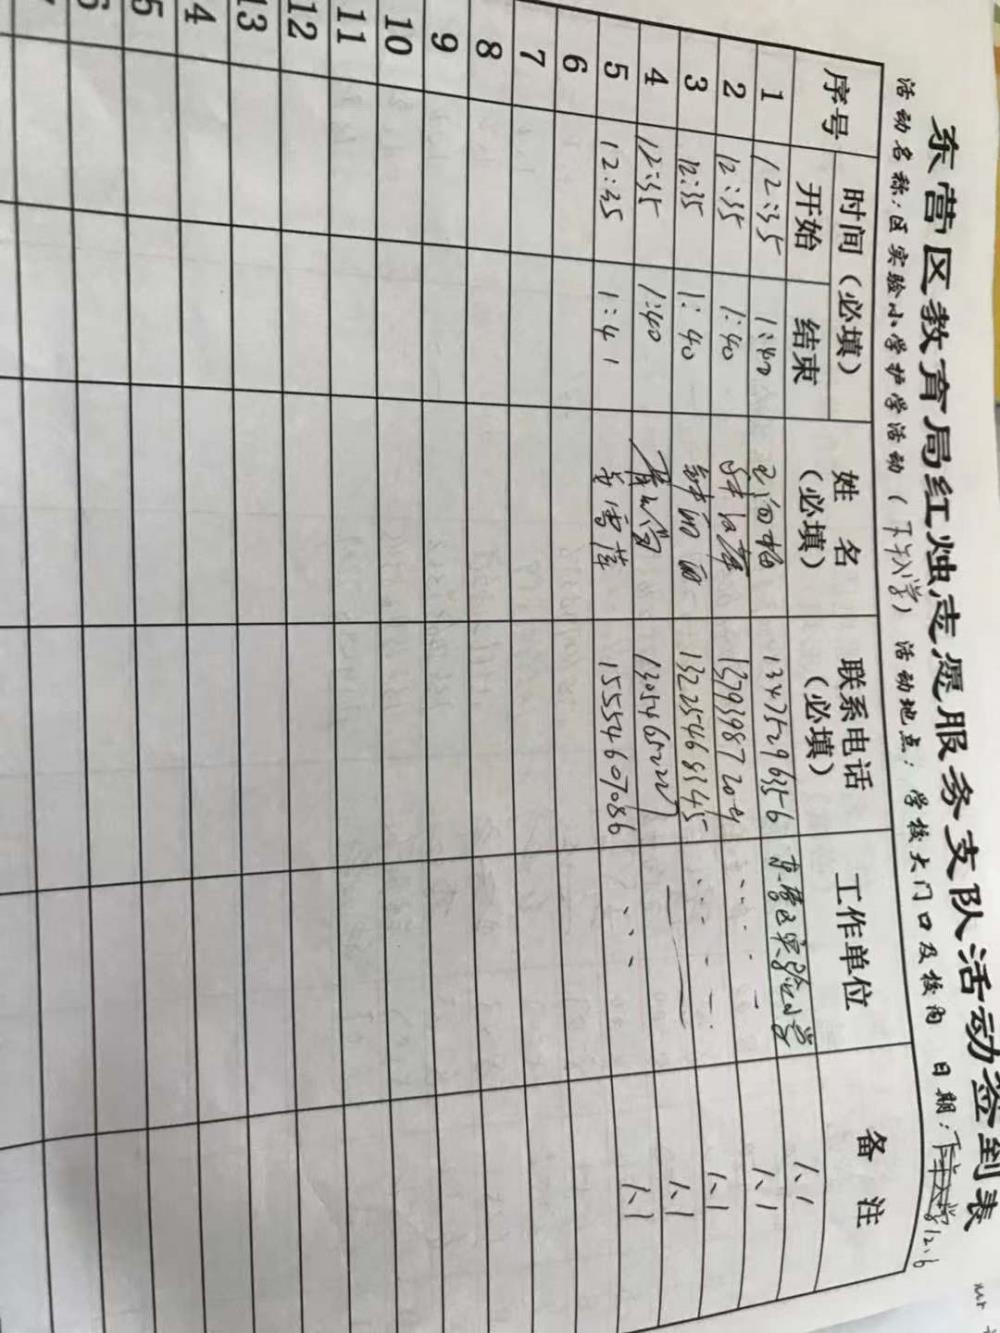 东营区教育局红烛志愿服务支队活动签到表
活动名称：区实验小学护学活动（下午入学） 活动地点：学校大门口及校内 日期：12.6
序号 时间（必填） 姓名（必填） 联系电话（必填） 工作单位 备注
开始 结束
1 12:35 1:40 13475296356 东营区实验小学 1.1
2 12:35 1:40 1.1
3 12:35 1:40 13225468345 1.1
4 12:35 1:40 1.1
5 12:35 1:41 15554607086 1.1
6
7
8
9
10
11
12
13
4
5
6